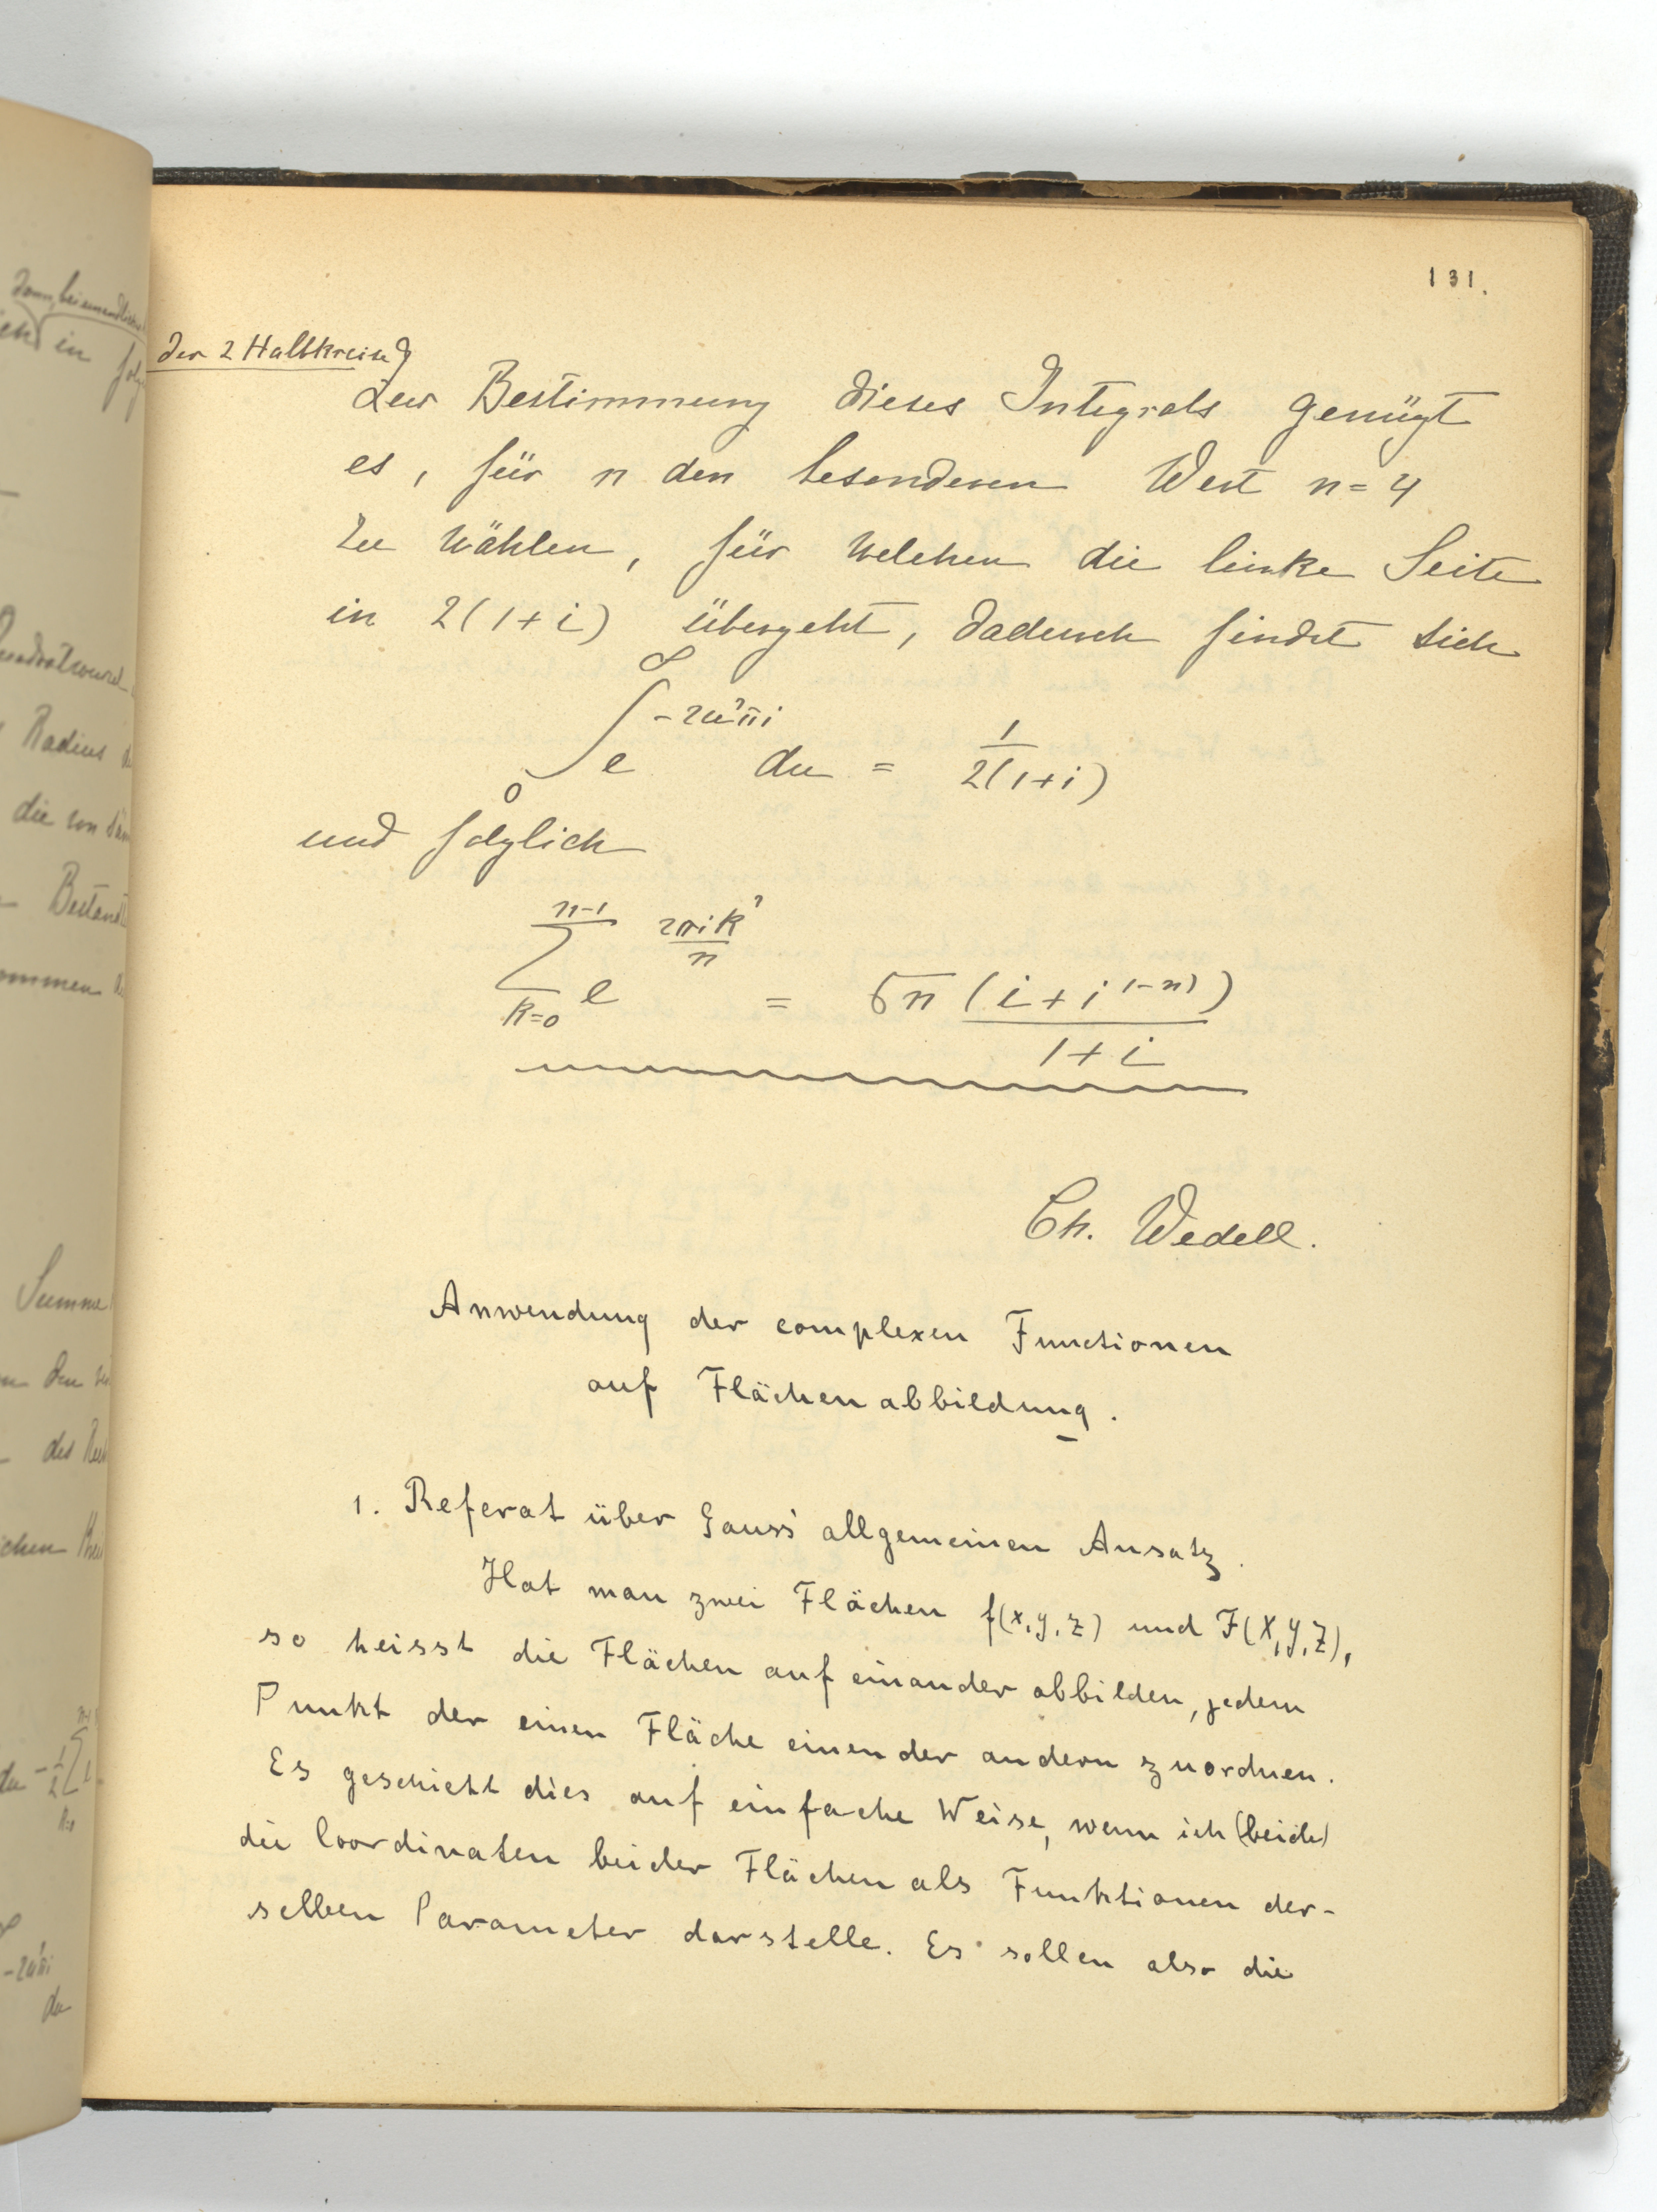 131.
der 2 Halbkreise
Zur Bestimmung dieses Integrals genügt
es, für n den besonderen Wert n=4
zu wählen, für welchen die linke Seite
in 2(1+i) übergeht, dadurch findet sich
∫₀^∞ e^{-2u²πi} du = 1/2(1+i)
und folglich
∑_{k=0}^{n-1} e^{2πik²/n} = √n (i+i^{1-n)})/1+i
Ch. Wedell.
Anwendung der complexen Functionen
auf Flächenabbildung.
1. Referat über Gauss' allgemeinen Ansatz.
Hat man zwei Flächen f(x,y,z) und F(X,Y,Z),
so heisst die Flächen auf einander abbilden, jedem
Punkt der einen Fläche einen der andern zuordnen.
Es geschieht dies auf einfache Weise, wenn ich (beide)
die Coordinaten beider Flächen als Funktionen der-
selben Parameter darstelle. Es sollen also die